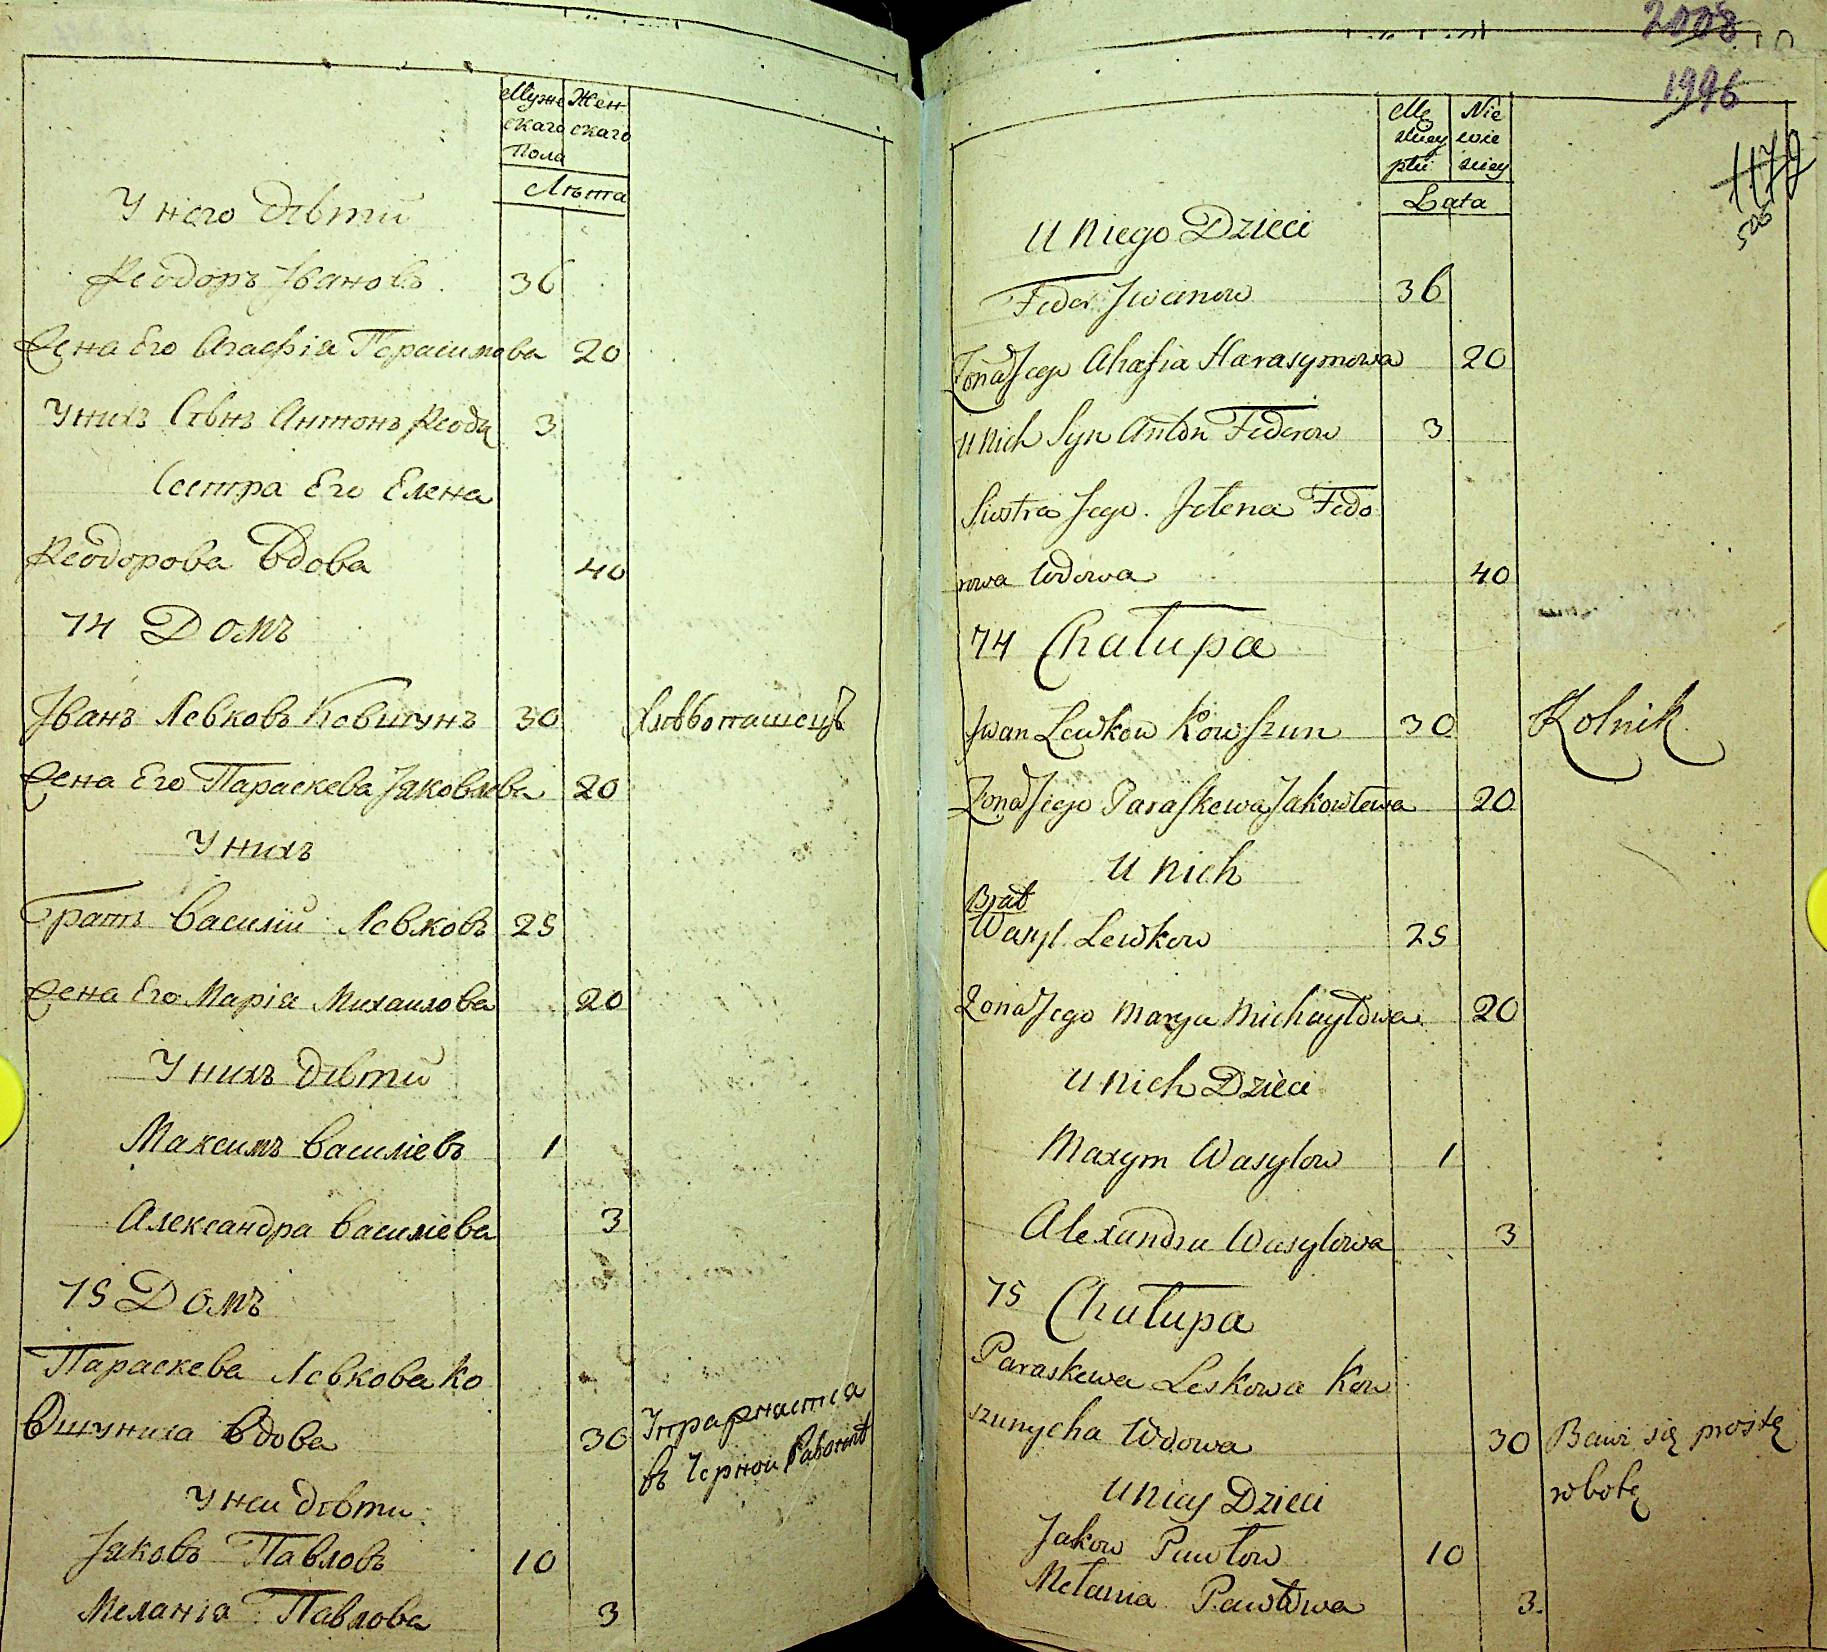 Муже Жен
скаго скаго
Пола
Лѣта
У него дѣти
Ѳеодоръ Івановъ 36
Жена Его Агафія Герасимова 20
У нихъ Сынъ Антонъ Ѳеодо 3
Сестра Его Елена
Ѳеодорова Вдова 40
74 Домъ
Іванъ Левковъ Ковшунъ 30 Хлѣбопашецъ
Жена Его Параскева Јаковлева 20
У нихъ
Братъ Василій Левковъ 25
Жена Его Марія Михаилова 20
У нихъ дѣти
Максимъ Василіевъ 1
Александра Василіева 3
75 Домъ
Параскева Левкова Ко
вшуниха Вдова 30 Упражнаетса
въ Черной Работѣ
У неи дѣти
Јаковъ Павловъ 10
Меланіа Павлова 3
2008
1996
Mę Nie
skiey wie
płci sciey
Lata
U Niego Dzieci
Fedor Jwanow 36
Żona Jego Ahafia Harasymowa 20
U Nich Syn Anton Fedorow 3
Siostra Jego Jelena Fedo
rowa Wdowa 40
74 Chałupa
Jwan Lewkow Kowszun 30 Rolnik
Żona Jego Paraskewa Jakowlewa 20
U Nich
Brat
Wasyl Lewkow 25
Żona Jego Marya Michayłowa 20
U Nich Dzieci
Maxym Wasylow 1
Alexandra Wasylowa 3
75 Chałupa
Paraskewa Leskowa Kow
szunycha Wdowa 30 Bawi się prostą
robotą
U Niey Dzieci
Jakow Pawłow 10
Melania Pawłowa 3.